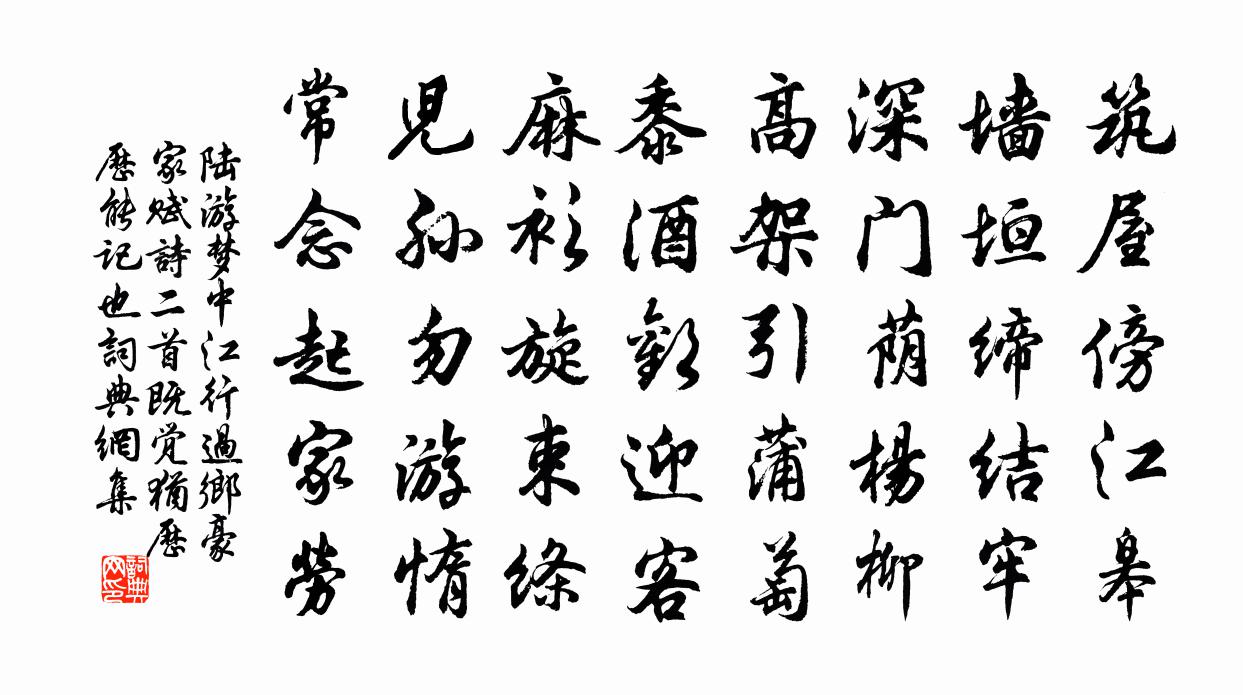 筑屋傍江皋
墙垣缔结牢
深门荫杨柳
高架引蒲萄
黍酒歡迎客
麻衫旋束绦
児孙勿游惰
常念起家劳
陆游梦中江行過鄉豪
家赋詩二首既觉猶歷
歷能记也詞典網集
詞典网印